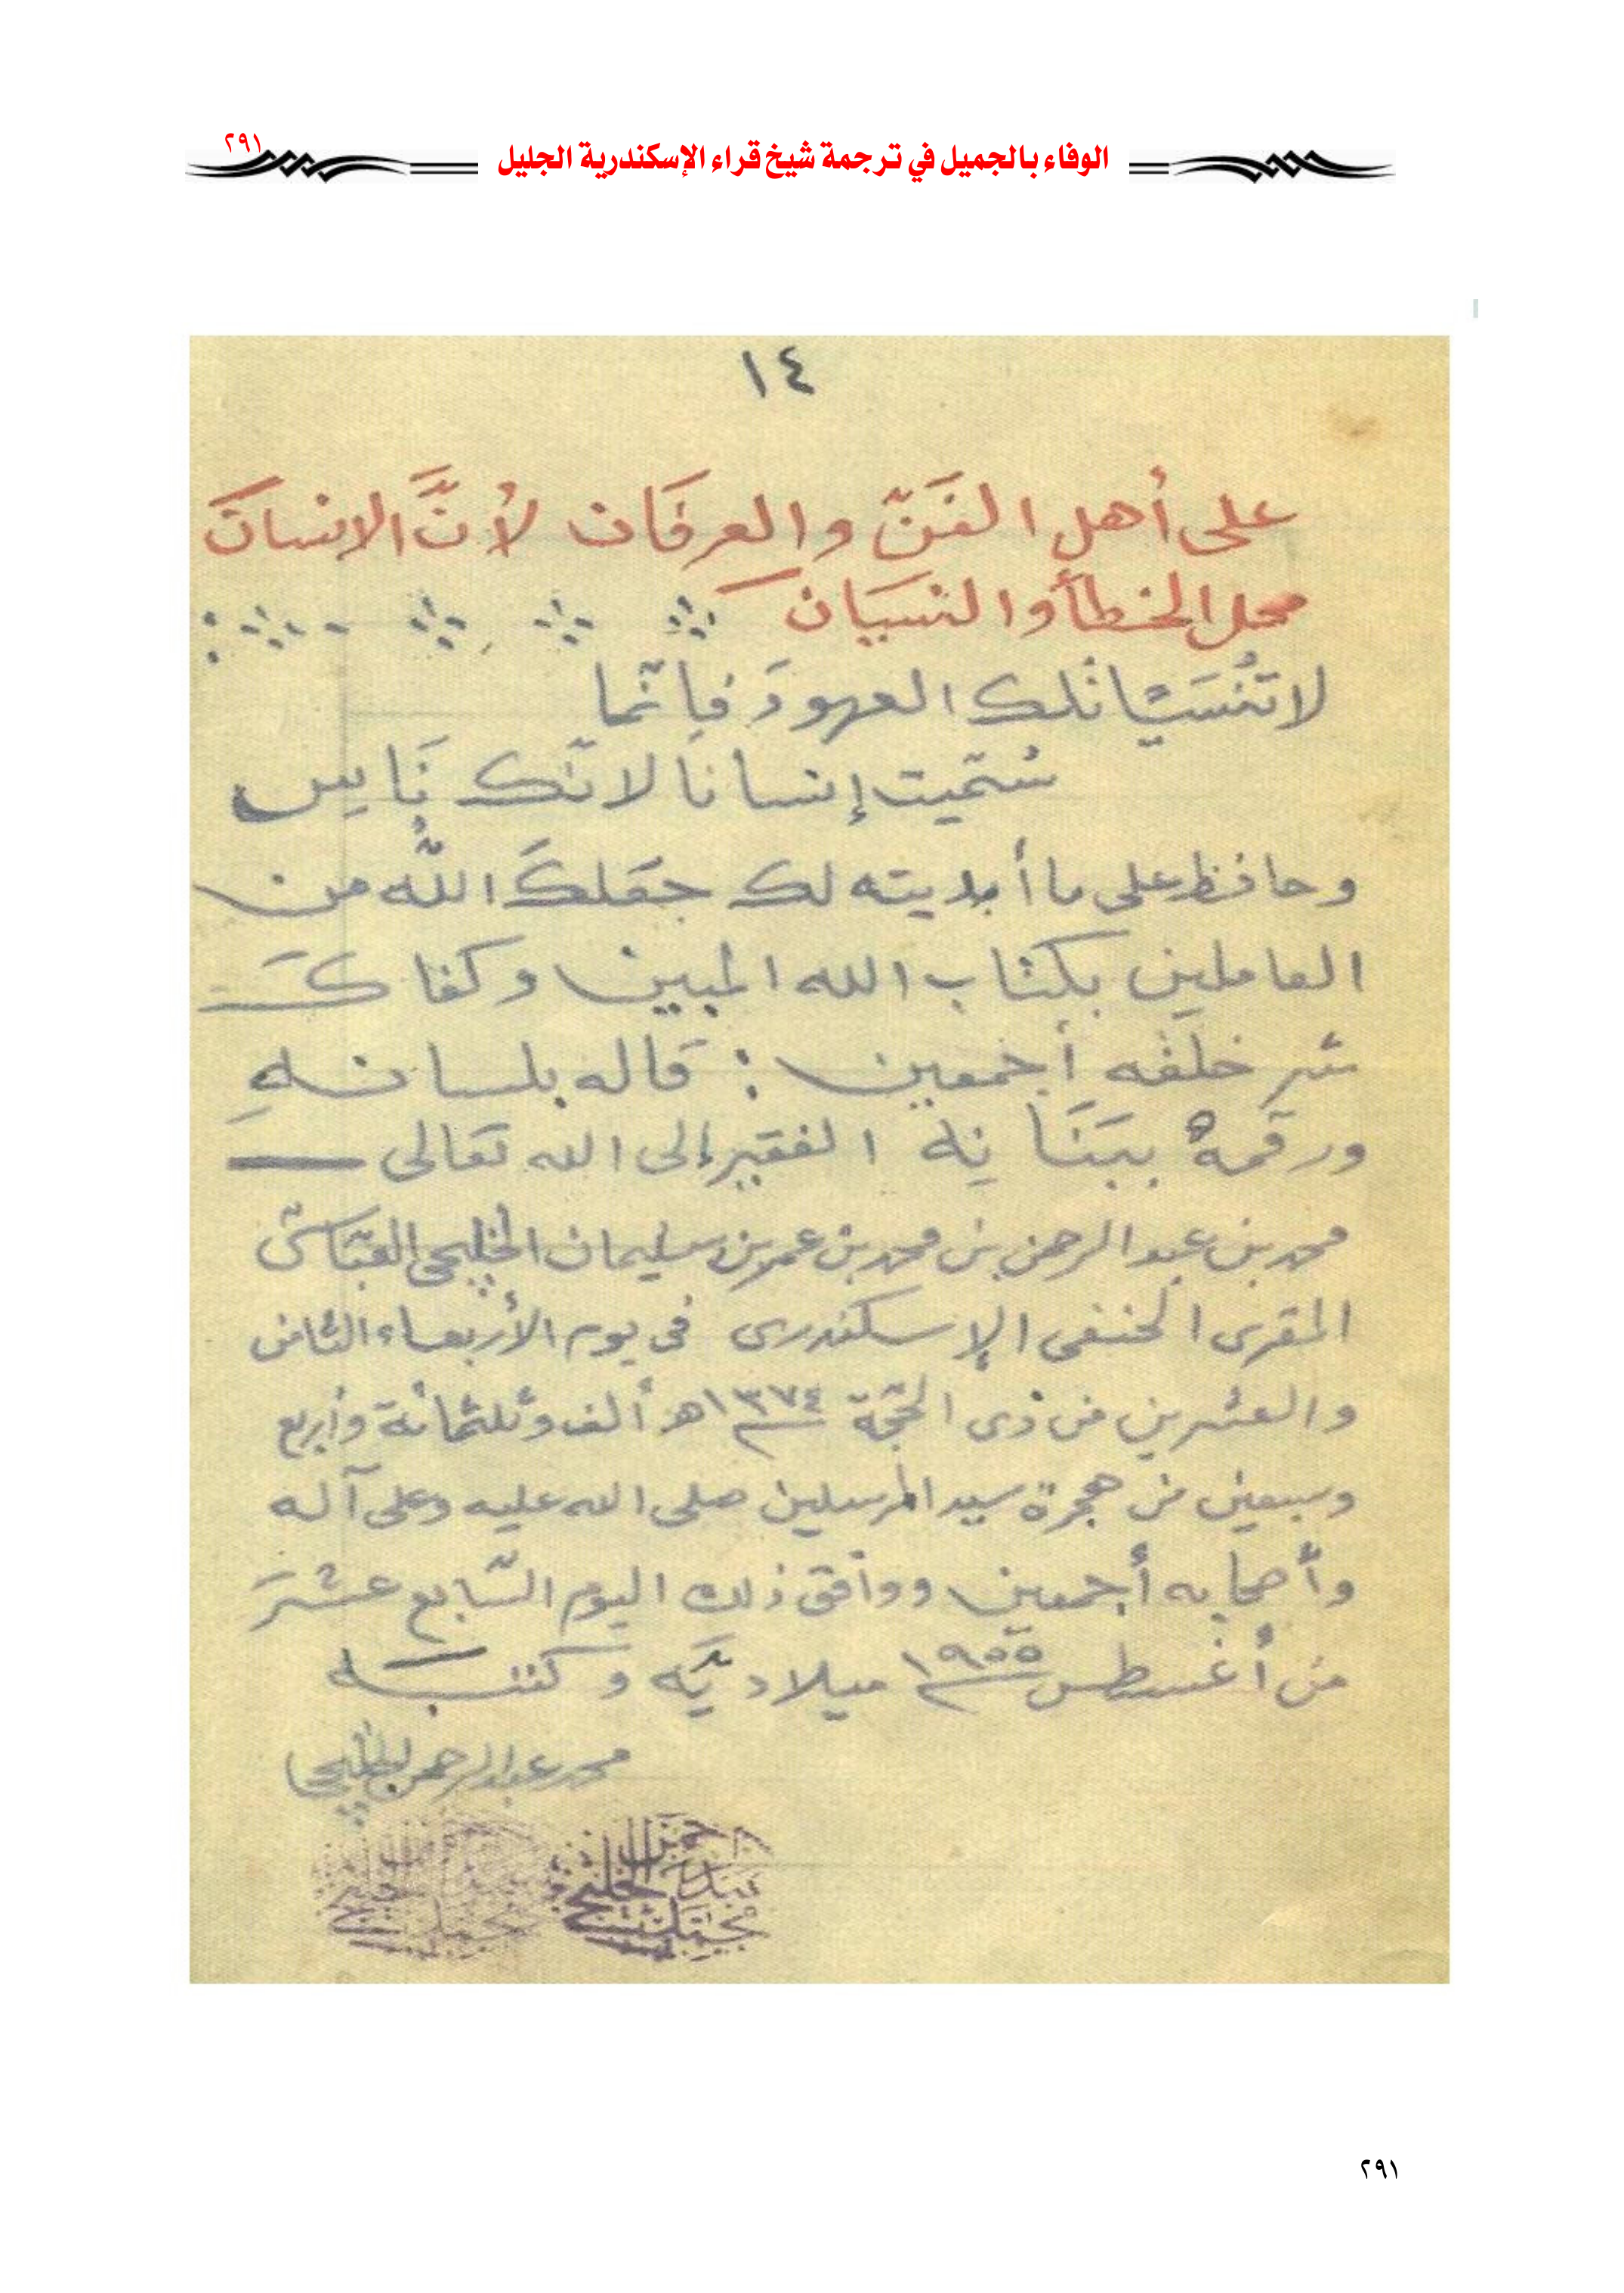 الوفاء بالجميل في ترجمة شيخ قراء الإسكندرية الجليل
٢٩١
١٤
على أهل الفَنّ والعرفَان لأنَّ الانسانَ
محل الخطأ والنسيان
لا تنسَيَنْ تلك العهودَ فإنّما
سُمّيت إنسانا لأنّك نَاسِ
وحافظ على ما أبديته لك جعَلكَ اللَّه من
العاملين بكتاب الله المبين وكفاكَ
شر خلقه أجمعين : قاله بلسانهِ
ورقمهُ ببَنَانِهِ الفقير إلى الله تعَالى
محمد بن عبد الرحمن بن محمد بن عمر بن سليمان الخليجى العبّاسى
المقرى الحنفى الإسكندرى فى يوم الأربعاء الثامن
والعشرين من ذى الحجّة ١٣٧٤ هـ ألف وثلثمائة وأربع
وسبعين من هجرة سيد المرسلين صلى الله عليه وعلى آله
وأصحابه أجمعين ووافق ذلك اليوم السّابع عشَرَ
من أغسطس ١٩٥٥ ميلاديّه وكتبَه
محمد عبد الرحمن الخليجى
٢٩١